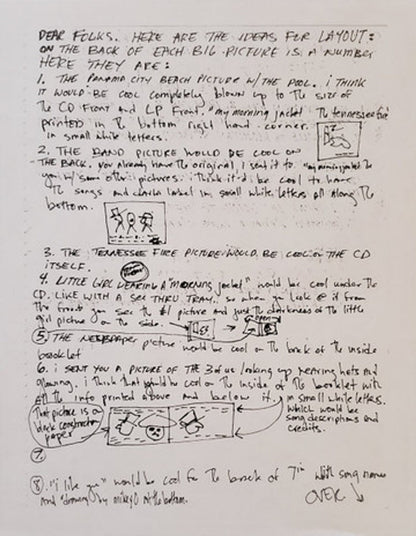 DEAR FOLKS. HERE ARE THE IDEAS FOR LAYOUT:
ON THE BACK OF EACH BIG PICTURE IS A NUMBER
HERE THEY ARE:
1. THE PANAMA CITY BEACH PICTURE W/ THE POOL. i THINK
IT WOULD BE COOL completely blown up to the size of
The CD Front and LP Front. "my morning jacket The tennessee fire"
printed in the bottom right hand corner.
in small white letters.
2. THE BAND PICTURE WOULD BE COOL ON
THE BACK. you already have the original i sent it to
you w/ some other pictures. i think it'd be cool to have
the songs and darla label in small white letters all along the
bottom.
3. THE TENNESSEE FIRE PICTURE WOULD BE COOL ON THE CD
ITSELF.
4. LITTLE GIRL WEARING A "MORNING jacket" would be cool under the
CD. LIKE WITH A SEE THRU TRAY. so when you look @ it from
the front you see the #1 picture and just the darkness of the little
girl picture on the side.
5. THE NEWSPAPER picture would be cool on the back of the inside
booklet
6. i SENT YOU A PICTURE OF THE 3 of us looking up wearing hats and
glowing. i think that would be cool on the inside of the booklet with
all the info printed above and below it. in small white letters.
That picture is a
black construction
paper
which would be
song descriptions and
credits.
7.
8. "i like you" would be cool for the back of 7" with song names
and "drawing" by mikey O at the bottom.
OVER